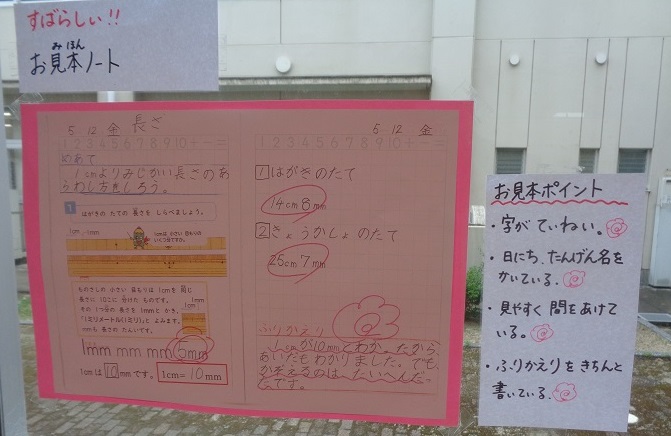 すばらしい!!
お見本ノート
みほん
5 12 金 長さ
1 2 3 4 5 6 7 8 9 10 + - =
めあて
1cmよりみじかい長さのあ
らわし方をしろう。
1 はがきの たての 長さを しらべましょう。
1cm
1mm
1cmは 小さい 目もりの
いくつ分ですか。
ものさしの 小さい 目もりは 1cmを 同じ
長さに 10こに 分けた ものです。
その 1つ分の 長さを 1mmと かき、
「1ミリメートル(ミリ)」と よみます。
mmも 長さの たんいです。
1cm
1mm
1mm mm mm 5mm
1cmは 10mmです。 1cm=10mm
5 12 金
1 2 3 4 5 6 7 8 9 10 + - =
1 はがきのたて
14cm 8mm
2 きょうかしょのたて
25cm 7mm
ふりかえり
1cmが10mmとわかったから、
あいだもわかりました。でも、
かぞえるのは、たいへんだっ
たです。
お見本ポイント
・字がていねい。
・日にち、たんげん名を
かいている。
・見やすく 間をあけて
いる。
・ふりかえりをきちんと
書いている。